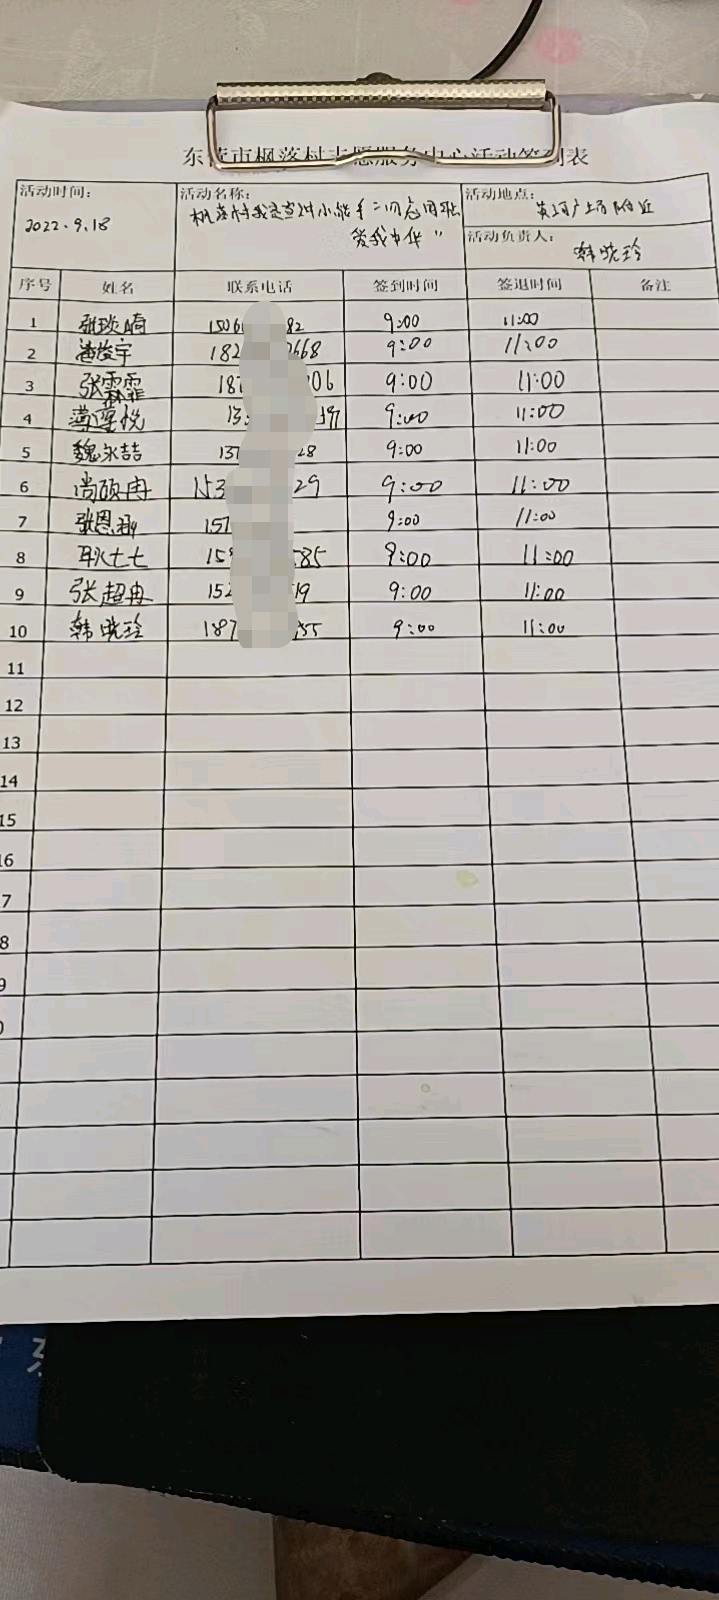 东营市枫落村志愿服务中心活动签到表
活动时间:
2022.9.18
活动名称:
枫落村 小能手"勿忘国耻
爱我中华"
活动地点:
黄河广场附近
活动负责人:
韩晓玲
序号 姓名 联系电话 签到时间 签退时间 备注
1 张琰崎 150 82 9:00 11:00
2 潘俊宇 182 668 9:00 11:00
3 张霖霏 187 06 9:00 11:00
4 13 9:00 11:00
5 魏永喆 137 28 9:00 11:00
6 尚硕冉 153 29 9:00 11:00
7 张恩 151 9:00 11:00
8 耿七七 159 585 9:00 11:00
9 张超冉 152 19 9:00 11:00
10 韩晓玲 187 55 9:00 11:00
11
12
13
14
15
16
7
8
9